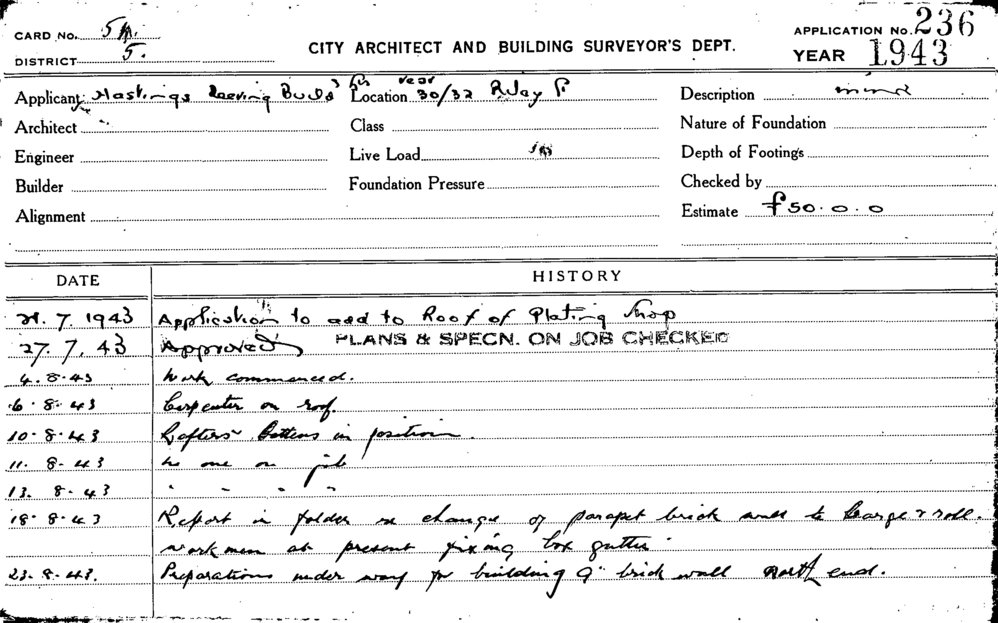 CARD No. 5A. APPLICATION No. 236
DISTRICT 5. CITY ARCHITECT AND BUILDING SURVEYOR'S DEPT. YEAR 1943
rear
Applicant Hastings Deering Build Location 30/32 Riley St Description
Architect Class Nature of Foundation
Engineer Live Load Depth of Footings
Builder Foundation Pressure Checked by
Alignment Estimate £50.0.0
DATE HISTORY
21.7.1943 Application to add to Roof of Plating Shop
27.7.43 Approved PLANS & SPECN. ON JOB CHECKED
4.8.43 Work commenced.
6.8.43 Carpenter on roof.
10.8.43 Rafters Battens in position.
11.8.43 No one on job
13.8.43 " " " "
18.8.43 Report in folder re change of parapet brick wall to barge & roll.
workmen at present fixing box gutter.
23.8.43. Preparations under way for building 9" brick wall north end.